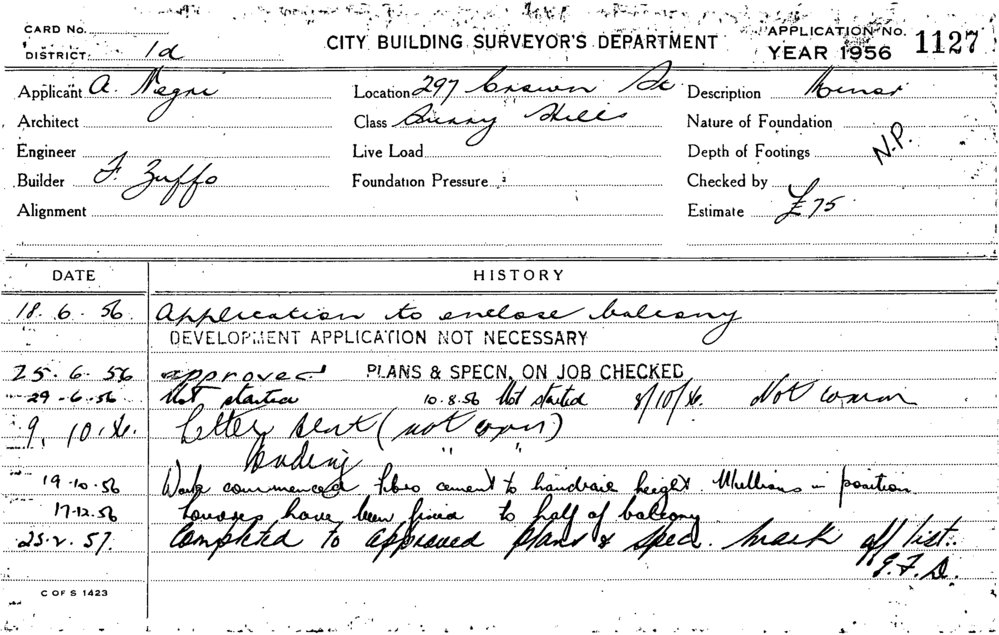 CARD No.
DISTRICT. 1d
CITY BUILDING SURVEYOR'S DEPARTMENT
APPLICATION No. 1127
YEAR 1956
Applicant A. Negri
Location 297 Crown St
Description Minor
Architect
Class Surry Hills
Nature of Foundation
Engineer
Live Load
Depth of Footings
N.P.
Builder F. Zuffo
Foundation Pressure
Checked by
Alignment
Estimate £75
DATE HISTORY
18.6.56. Application to enclose balcony
DEVELOPMENT APPLICATION NOT NECESSARY
25.6.56 approved PLANS & SPECN, ON JOB CHECKED
29-6-56 Not started 10.8.56 Not started 8/10/56. Not comm
9.10.56. Letter sent (not comm)
" "
19.10.56 Work commenced fibro cement to handrail height. Mullions in position
17.12.56 Louvres have been fixed to half of balcony
25.2.57. Completed to approved plans & spec. Mark off list.
G.F.D.
C OF S 1423